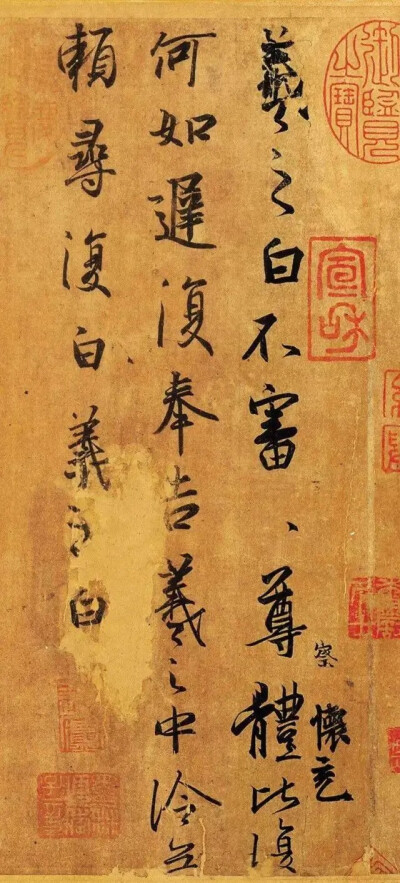 羲之白不審、尊體比復
何如遲復奉告羲之中冷無
賴尋復白羲之白
察
懷充
宣和